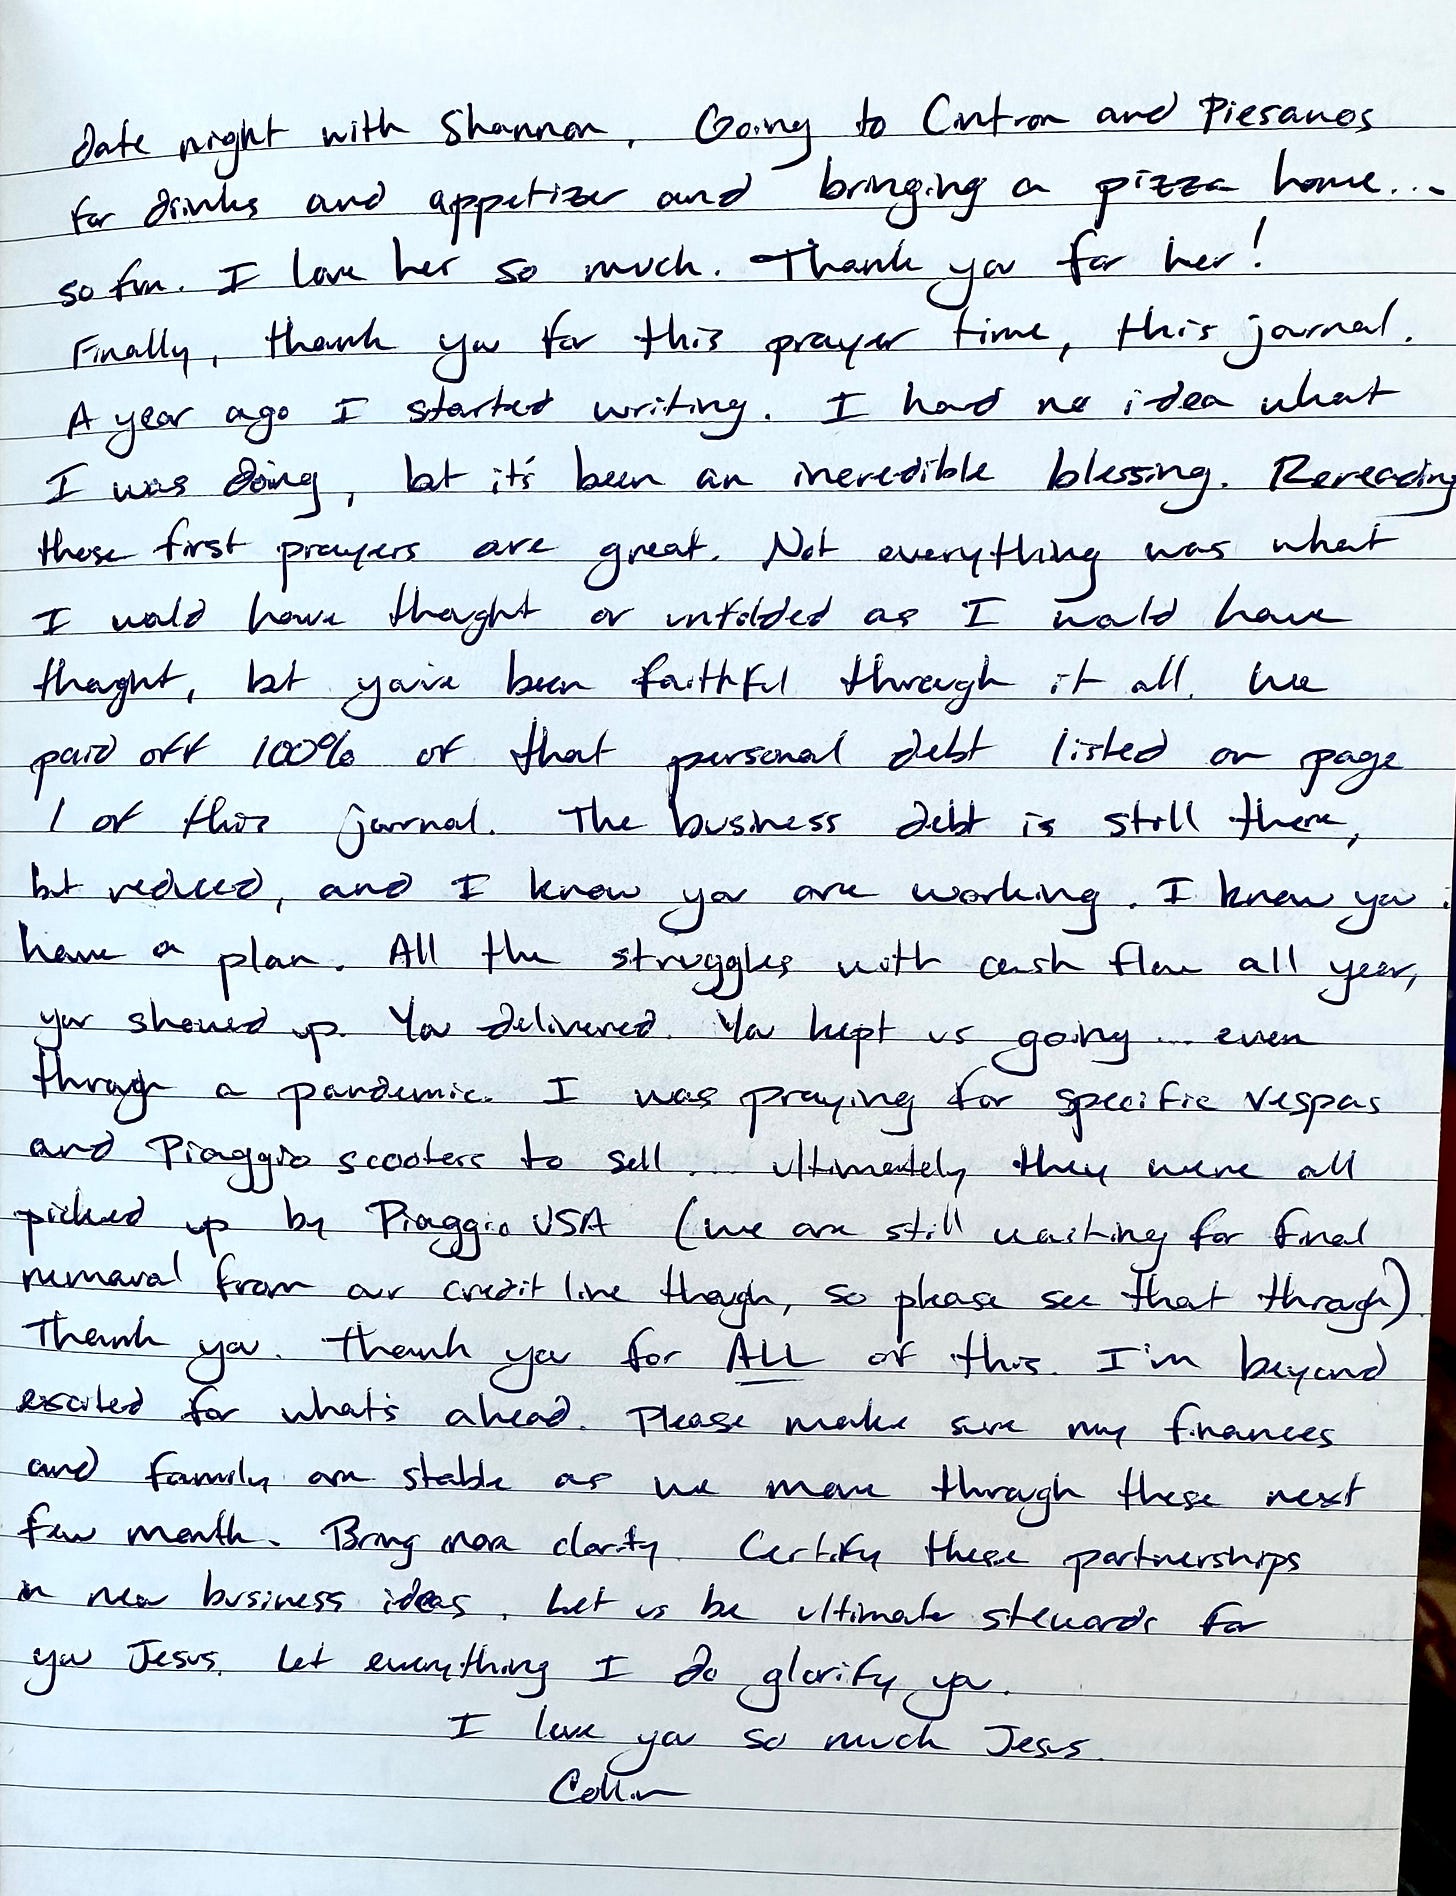 date night with Shannon. Going to Cintron and Piesanos
for drinks and appetizer and bringing a pizza home...
so fun. I love her so much. Thank you for her!
Finally, thank you for this prayer time, this journal.
A year ago I started writing. I had no idea what
I was doing, but it's been an incredible blessing. Rereading
those first prayers are great. Not everything was what
I would have thought or unfolded as I would have
thought, but you've been faithful through it all. We
paid off 100% of that personal debt listed on page
1 of this journal. The business debt is still there,
but reduced, and I know you are working. I know you
have a plan. All the struggles with cash flow all year,
you showed up. You delivered. You kept us going... even
through a pandemic. I was praying for specific Vespas
and Piaggio scooters to sell... ultimately they were all
picked up by Piaggio USA (we are still waiting for final
removal from our credit line though, so please see that through).
Thank you. Thank you for ALL of this. I'm beyond
excited for what's ahead. Please make sure my finances
and family are stable as we move through these next
few month. Bring more clarity. Certify these partnerships
in new business ideas. Let us be ultimate stewards for
you Jesus. Let everything I do glorify you.
I love you so much Jesus.
Collin